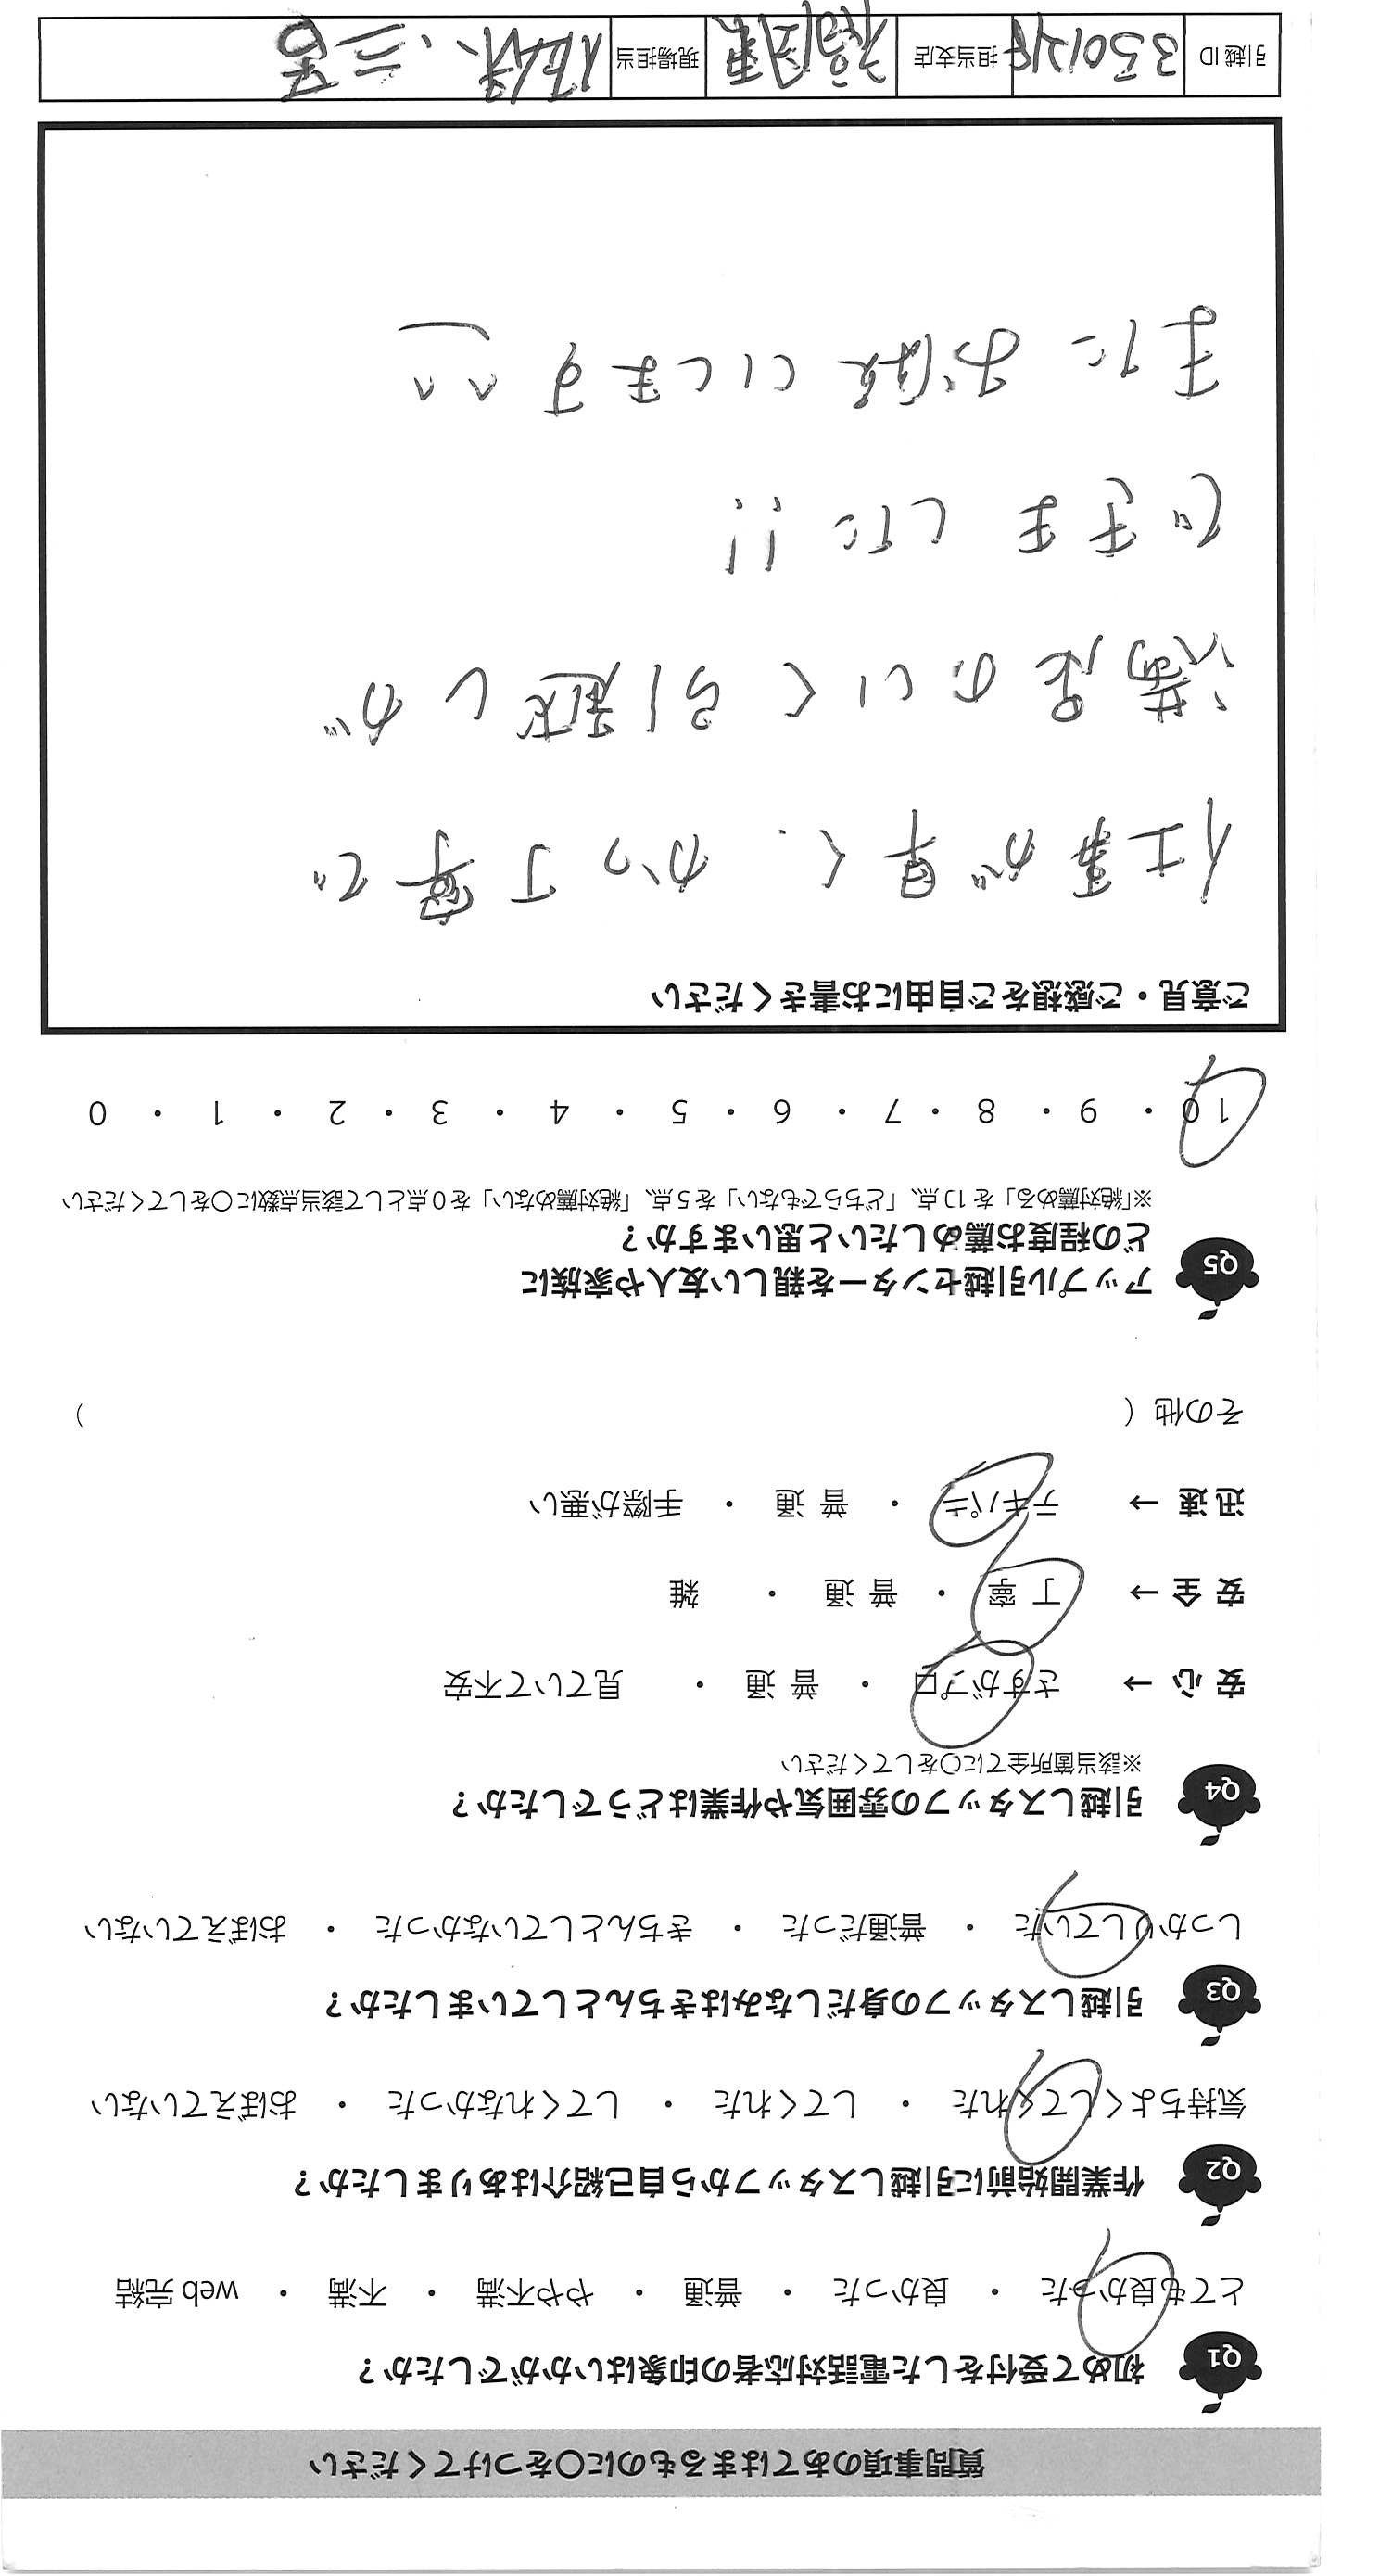 質問事項のあてはまるものに〇をつけてください
Q1 初めて受付をした電話対応者の印象はいかがでしたか？
とても良かった ・ 良かった ・ 普通 ・ やや不満 ・ 不満 ・ web 完結
Q2 作業開始前に引越しスタッフから自己紹介はありましたか？
気持ちよくしてくれた ・ してくれた ・ してくれなかった ・ おぼえていない
Q3 引越しスタッフの身だしなみはきちんとしていましたか？
しっかりしていた ・ 普通だった ・ きちんとしていなかった ・ おぼえていない
Q4 引越しスタッフの雰囲気や作業はどうでしたか？
※該当箇所全てに〇をしてください
安心 → さすがプロ ・ 普通 ・ 見ていて不安
安全 → 丁寧 ・ 普通 ・ 雑
迅速 → テキパキ ・ 普通 ・ 手際が悪い
その他（ ）
Q5 アップル引越センターを親しい友人や家族に
どの程度お薦めしたいと思いますか？
※「絶対薦める」を 10 点、「どちらでもない」を 5 点、「絶対薦めない」を 0 点として該当点数に〇をしてください
10 ・ 9 ・ 8 ・ 7 ・ 6 ・ 5 ・ 4 ・ 3 ・ 2 ・ 1 ・ 0
ご意見・ご感想をご自由にお書きください
仕事が早く、かつ丁寧で
満足のいく引越しが
できました!!
またお願いします^^
引越 ID 担当支店 現場担当